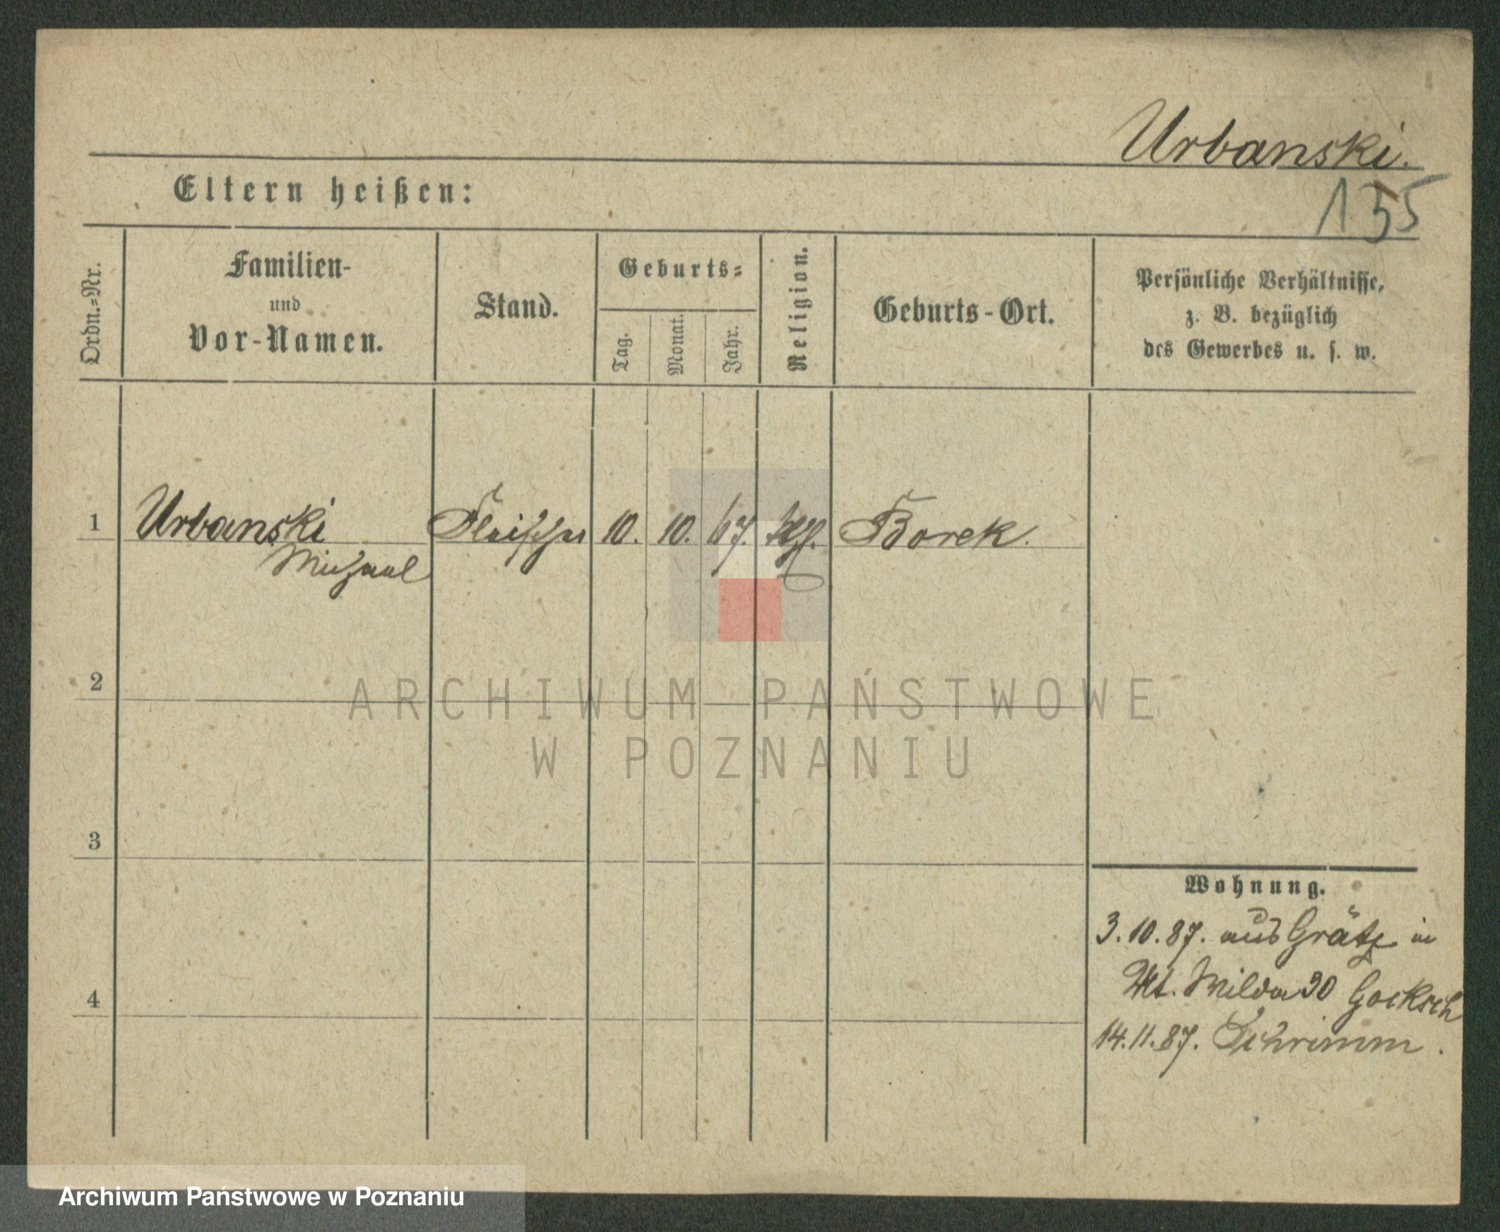 Urbanski.
155
Eltern heißen:
Ordn.-Nr.
Familien-
und
Vor-Namen.
Stand.
Geburts-
Tag.
Monat.
Jahr.
Religion.
Geburts-Ort.
Persönliche Verhältnisse,
z. B. bezüglich
des Gewerbes u. s. w.
1 Urbanski Fleischer 10. 10. 67. Borek.
Michael
2
ARCHIWUM PAŃSTWOWE
W POZNANIU
3
Wohnung.
3.10.87. aus Grätz in
Wilda 30
4
14.11.87. Schrimm.
Archiwum Państwowe w Poznaniu